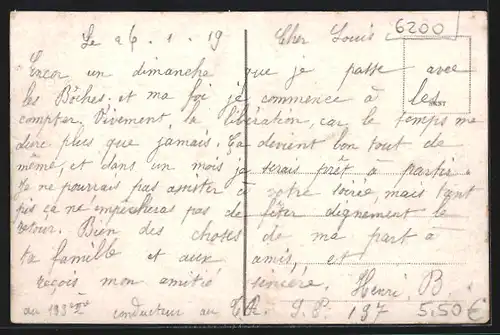 6200
Le 26.1.19 Cher Louis
Encor un dimanche que je passe avec
les Bôches. et ma foi je commence à les
compter. Vivement la libération, car le temps me
dure plus que jamais. Ça devient bon tout de
même, et dans un mois je serais prêt à partir.
Je ne pourrais pas assister à votre soirée, mais tant
pis ça ne empêcheras pas de fêter dignement le
retour. Bien des choses de ma part à
ta famille et aux amis, et
reçois mon amitié sincère. Henri B.
au 193eme conducteur au S.P. 197
5,50 €